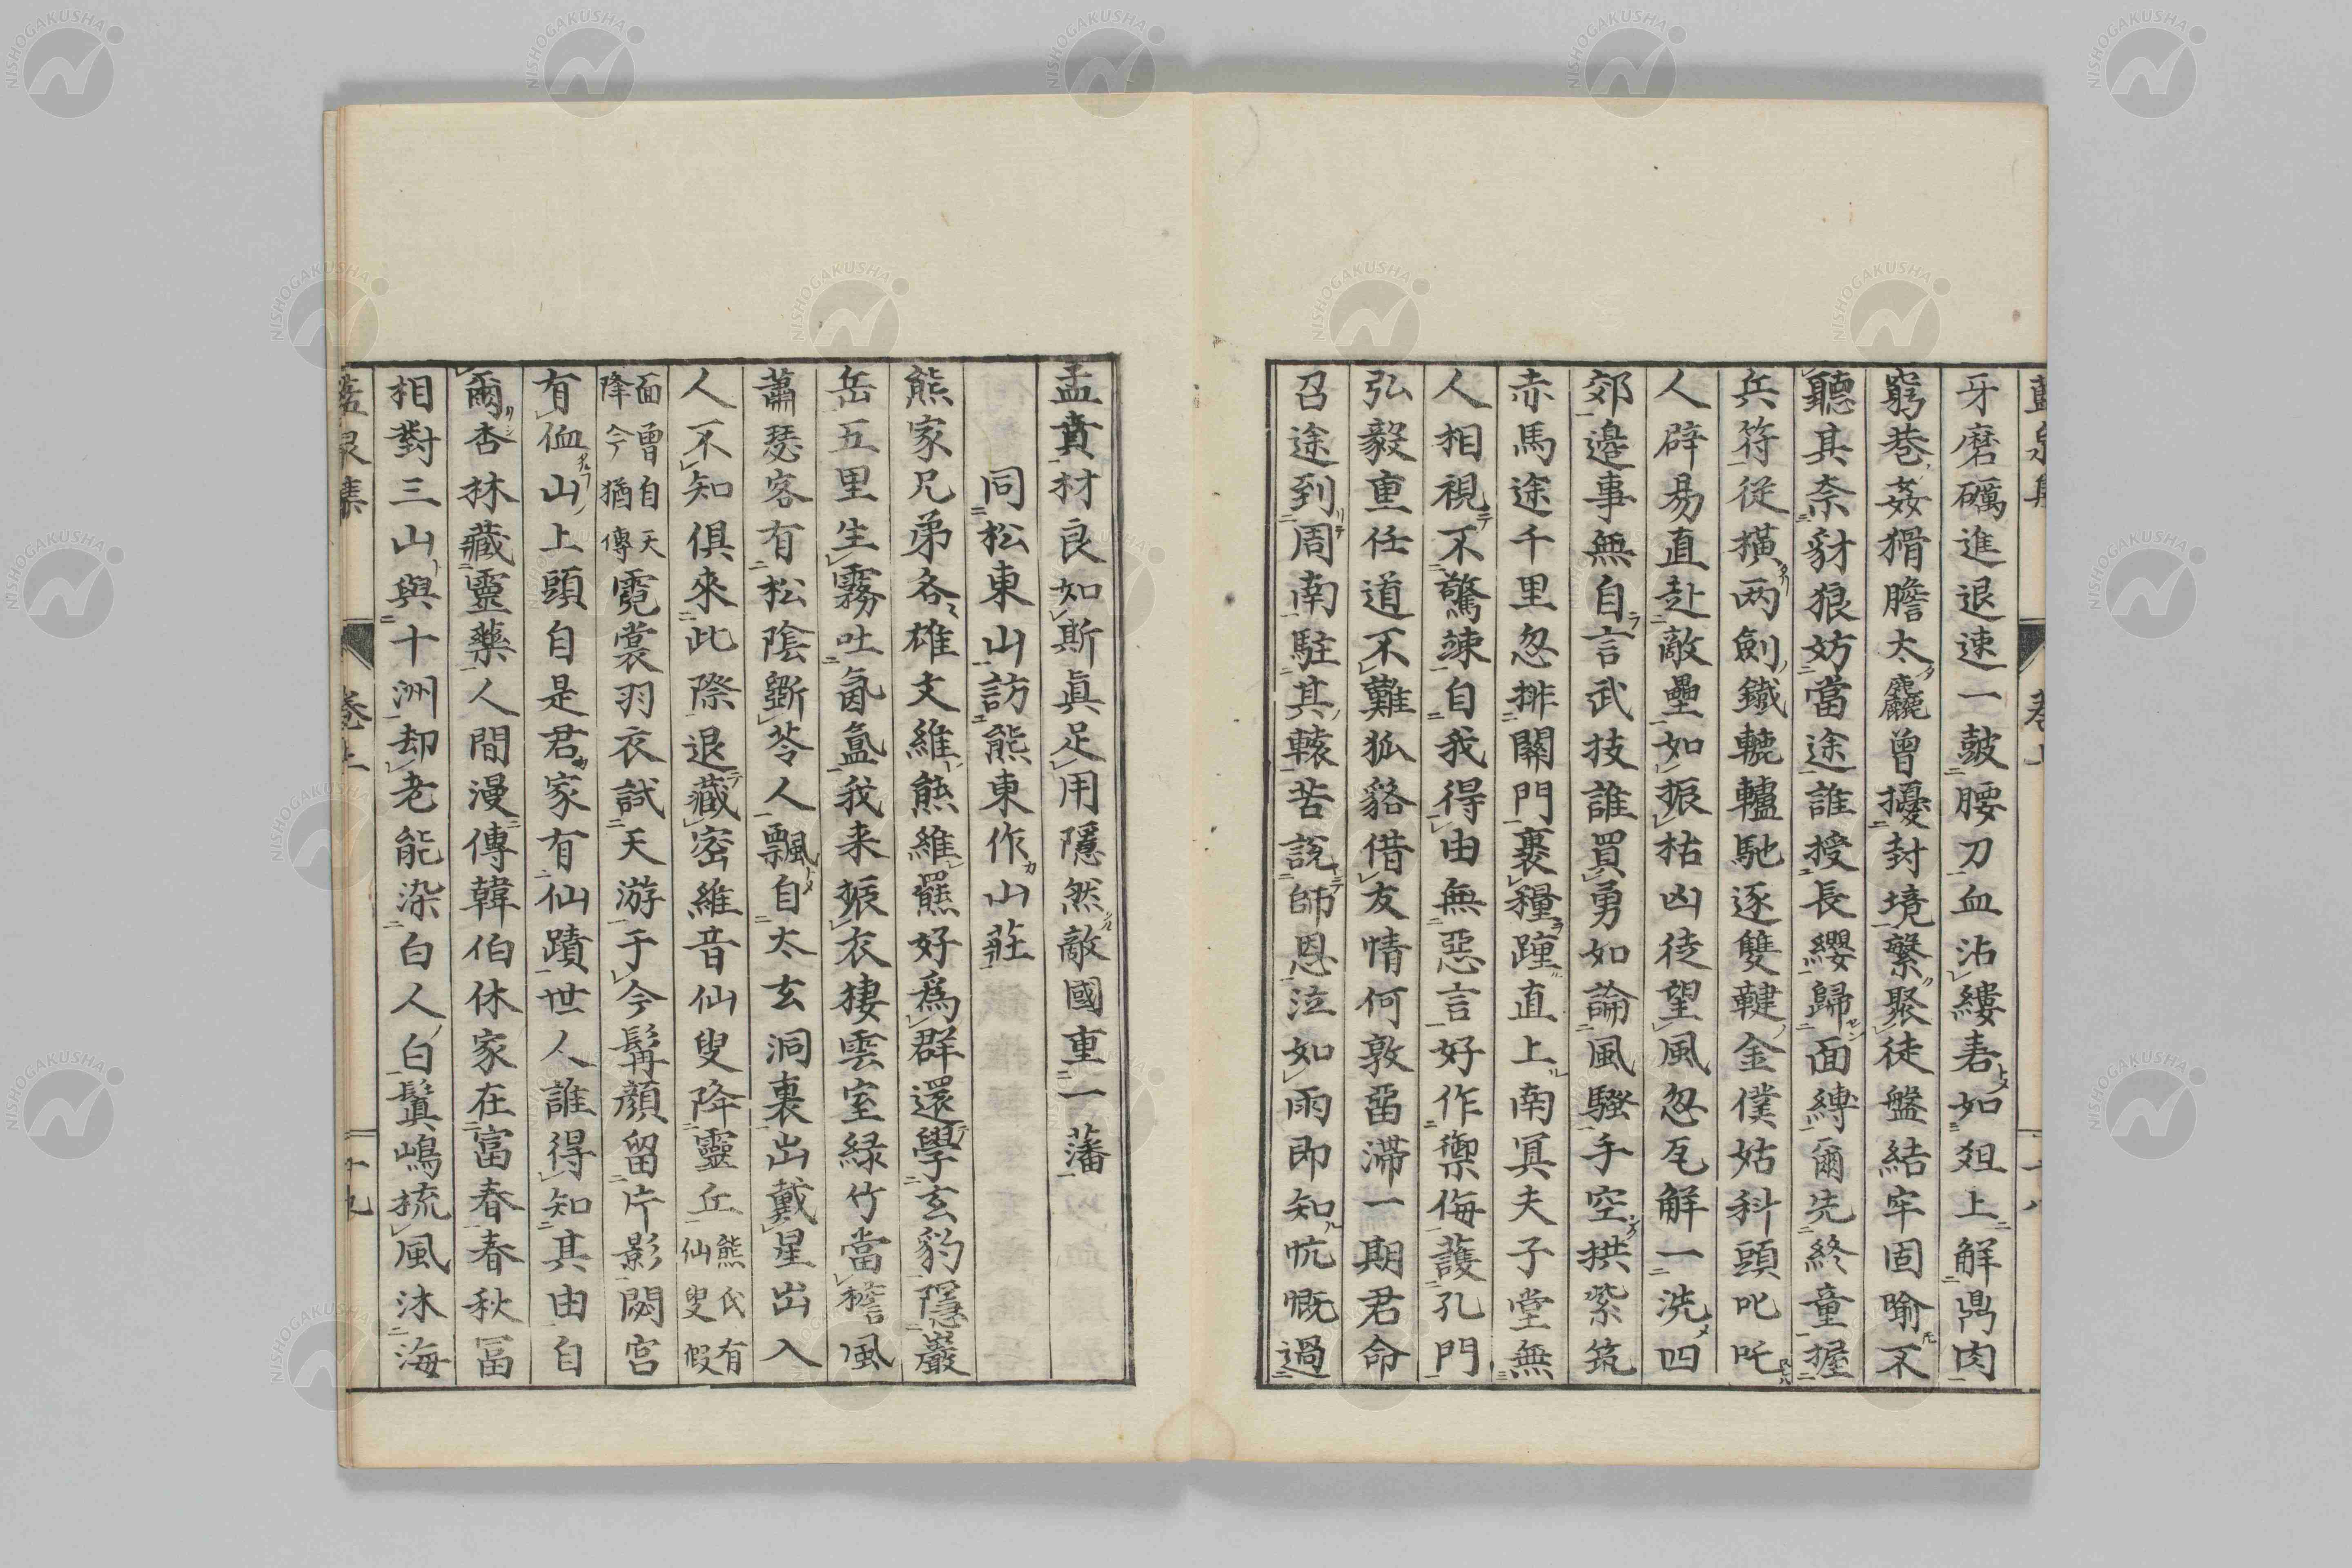 牙磨礪進退速一皷腰刀血沾縷춈如爼上解鼎肉
窮巷姦猾膽太麤曾擾封境繄聚徒盤結牢固喻不
聽其奈豺狼妨當途誰授長纓歸面縛爾先終童握
兵符從横两劍鐵轆轤馳逐雙鞬金僕姑科頭叱吒
人辟易直赴敵壘如振枯凶徒望風忽瓦解一洗四
郊邊事無自言武技誰買勇如論風騷手空拱紫筑
赤馬途千里忽排關門裹糧踵直上南冥夫子堂無
人相視不驚竦自我得由無惡言好作禦侮護孔門
弘毅重任道不難狐貉借友情何敦畱滯一期君命
召途到周南駐其轅苦說師恩泣如雨即知忼慨過
孟賁材良知斯眞足用隱然敵國重一藩
同松東山訪熊東作山莊
熊家兄弟各雄文維熊維羆好爲群還學玄豹隱巖
岳五里生霧吐氤氳我来振衣棲雲室緑竹當簷風
蕭瑟客有松陰斸苓人飄自太玄洞裏出戴星出入
人不知俱來此際退藏密維昔仙叟降靈丘熊氏有仙叟假
面曾自天降今猶傳霓裳羽衣試天游于今髯顔留片影閟宮
有侐山上頭自是君家有仙蹟世人誰得知其由自
爾杏林藏靈藥人間漫傳韓伯休家在富春春秋冨
相對三山與十洲却老能染白人白鬒嶋梳風沐海
藍泉集
卷上
十八
藍泉集
卷上
十九
NISHOGAKUSHA